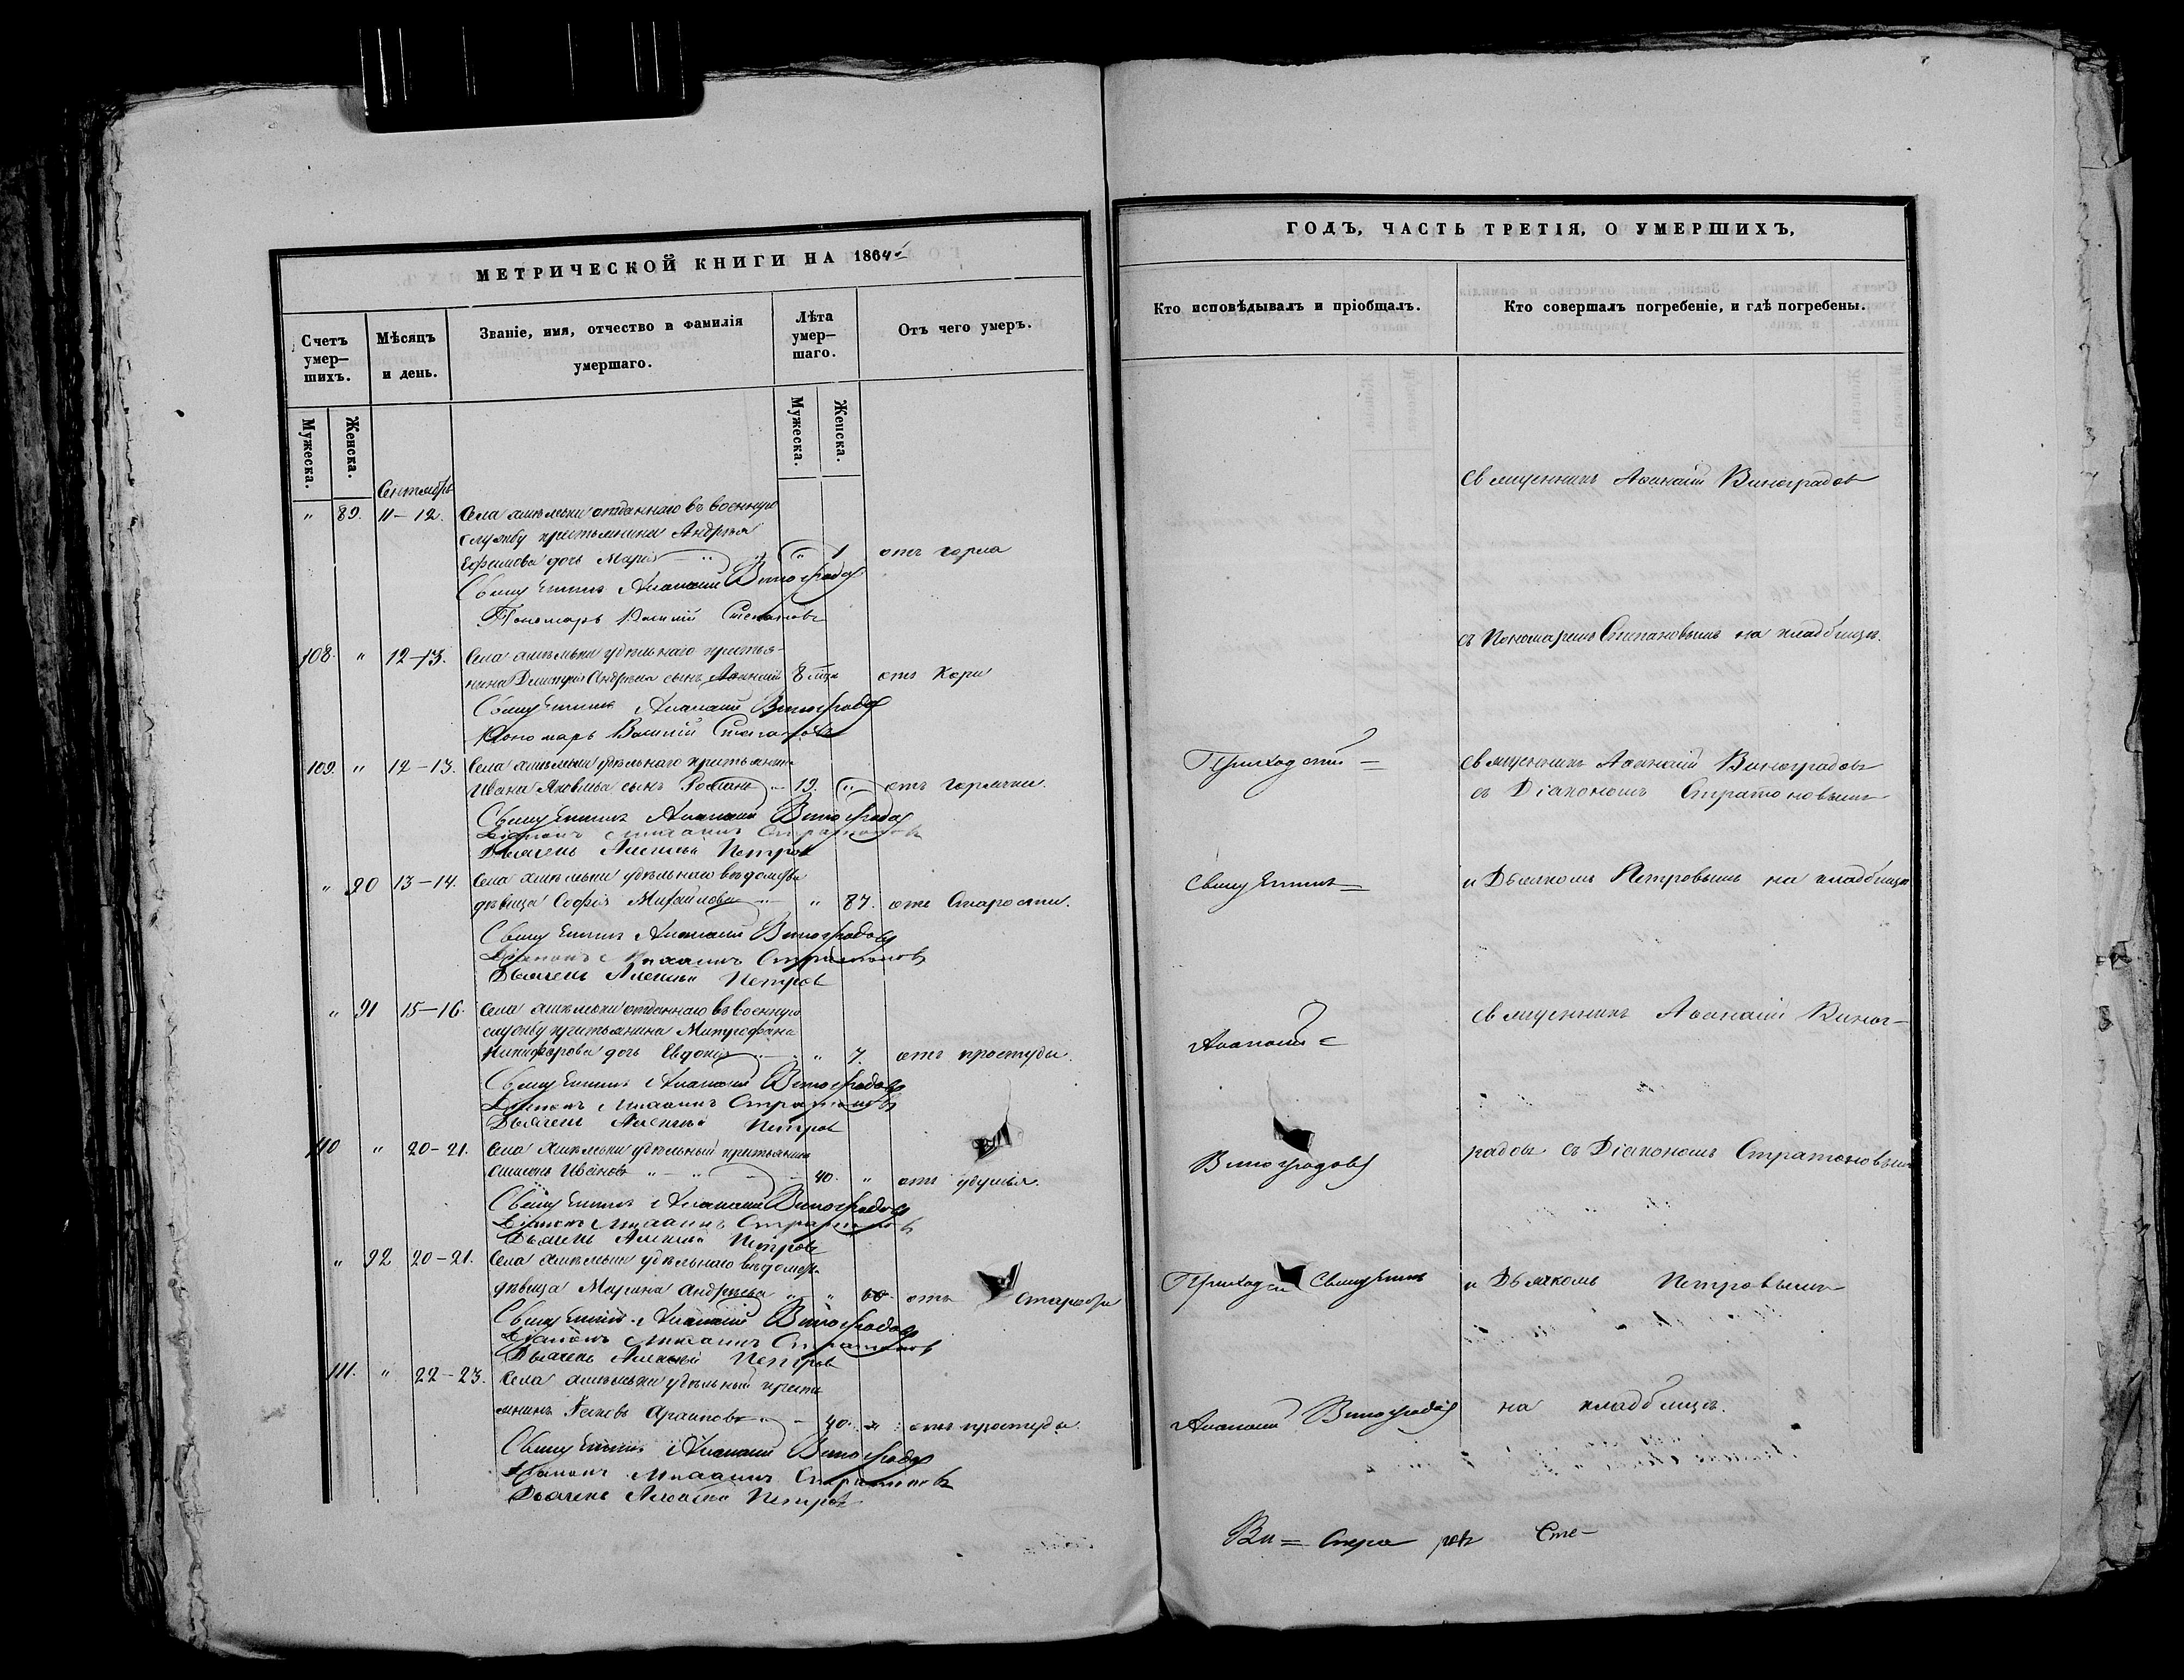 МЕТРИЧЕСКОЙ КНИГИ НА 1864й
Счетъ умер-шихъ.
Мѣсяцъ и день.
Званіе, имя, отчество и фамилія умершаго.
Лѣта умер-шаго.
Отъ чего умеръ.
Мужеска.
Женска.
Мужеска.
Женска.
Сентябрь
" 89. 11-12. Села отданнаго въ военную
службу крестьянина Андрея
Ефимова дочь Марія " " 1 отъ горла
Священникъ Аѳанасій Виноградовъ
Пономарь Василій Степановъ
108. " 12-13. Села удѣльнаго крестья-
нина Дмитрія Андреева сынъ Аѳанасій 8 отъ Кори
Священникъ Аѳанасій Виноградовъ
Пономарь Василій Степановъ
109. " 12-13. Села удѣльнаго крестьянина
Ивана Яковлева сынъ Романъ 19. " отъ горячки.
Священникъ Аѳанасій Виноградовъ
Діаконъ Михаилъ Стратоновъ
Дьячекъ Алексѣй Петровъ
" 90 13-14. Села удѣльнаго вѣдомства
дѣвица Софія Михайлова " 87. отъ Старости.
Священникъ Аѳанасій Виноградовъ
Діаконъ Михаилъ Стратоновъ
Дьячекъ Алексѣй Петровъ
" 91 15-16. Села отданнаго въ военную
службу крестьянина Митрофана
Никифорова дочь Евдокія " 7. отъ простуды.
Священникъ Аѳанасій Виноградовъ
Діаконъ Михаилъ Стратоновъ
Дьячекъ Алексѣй Петровъ
110 " 20-21. Села удѣльный крестьянинъ
Симеонъ Ивановъ " 40. " отъ удушья.
Священникъ Аѳанасій Виноградовъ
Діаконъ Михаилъ Стратоновъ
Дьячекъ Алексѣй Петровъ
" 92 20-21. Села удѣльнаго вѣдомства
дѣвица Марина Андреева " " 60. отъ Старости
Священникъ Аѳанасій Виноградовъ
Діаконъ Михаилъ Стратоновъ
Дьячекъ Алексѣй Петровъ
111. " 22-23. Села удѣльный кресть
янинъ Яковъ Архиповъ 40. " отъ простуды.
Священникъ Аѳанасій Виноградовъ
Діаконъ Михаилъ Стратоновъ
Дьячекъ Алексѣй Петровъ
ГОДЪ, ЧАСТЬ ТРЕТІЯ, О УМЕРШИХЪ,
Кто исповѣдывалъ и пріобщалъ.
Кто совершалъ погребеніе, и гдѣ погребены.
Священникъ Аѳанасій Виноградовъ
съ Пономаремъ Степановымъ на кладбищѣ.
Приходскій =
Священникъ Аѳанасій Виноградовъ
съ Діакономъ Стратоновымъ
Священникъ =
и Дьячкомъ Петровымъ на кладбищѣ
Священникъ Аѳанасій Виног-
Аѳанасій =
Виноградовъ
радовъ съ Діакономъ Стратоновымъ
Приходскій Священникъ
и Дьячкомъ Петровымъ
Аѳанасій Виноградовъ
на кладбищѣ.
Ви =
Сте-